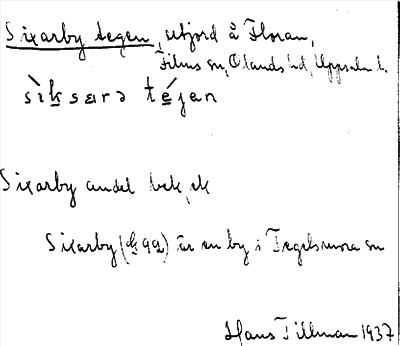 Sixarby tegen, utjord å Floran,
Films sn, Olands hd, Uppsala l.
sìksarə téjen
Sixarby andel
Sixarby (G 92) är en by i Tegelsmora sn
Hans Tillman 1937